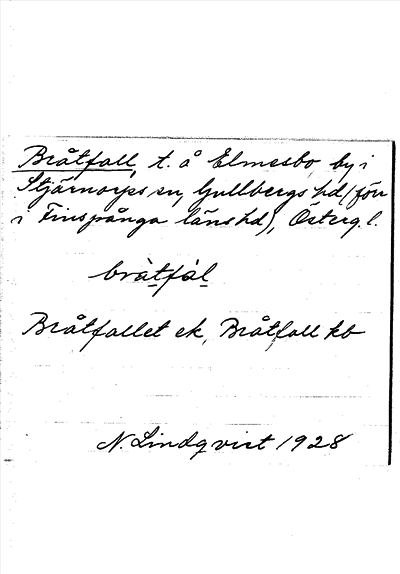 Bråtfall, t. å Elmesbo, by i
Stjärnorps sn, Gullbergs hd (förr
i Finspånga läns hd), Österg. l.
bråtfàl
Bråtfallet ek, Bråtfall kb
N. Lindqvist 1928